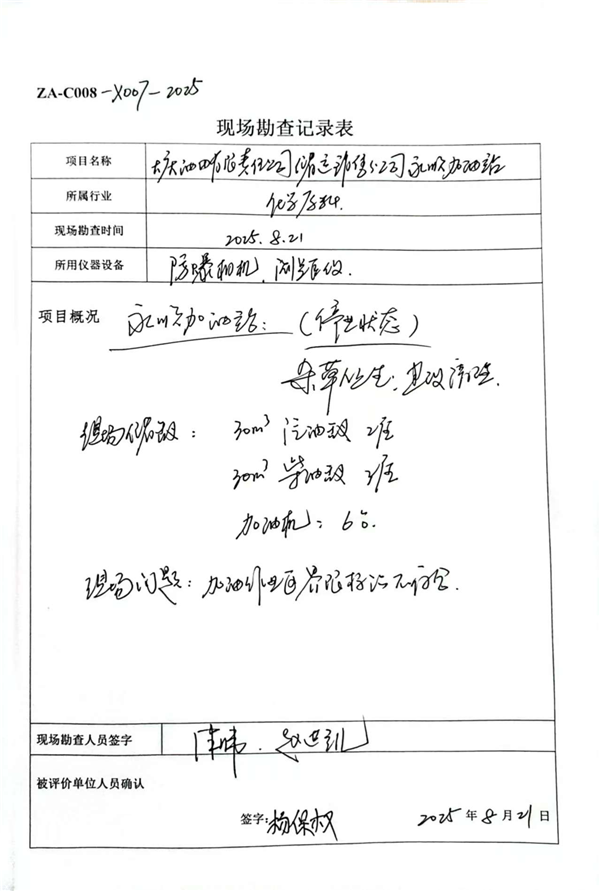 ZA-C008-X007-2025
现场勘查记录表
项目名称 大庆油田有限责任公司储运销售分公司永顺加油站
所属行业 化学原料
现场勘查时间 2025.8.21
所用仪器设备 防爆相机、测距仪
项目概况 永顺加油站：（停业状态）
杂草丛生；
现场储罐： 30m³ 汽油罐 2座
30m³ 柴油罐 2座
加油机：6台.
现场问题：加油作业区界限标识不符合.
现场勘查人员签字
被评价单位人员确认
签字: 杨保权 2025年8月21日